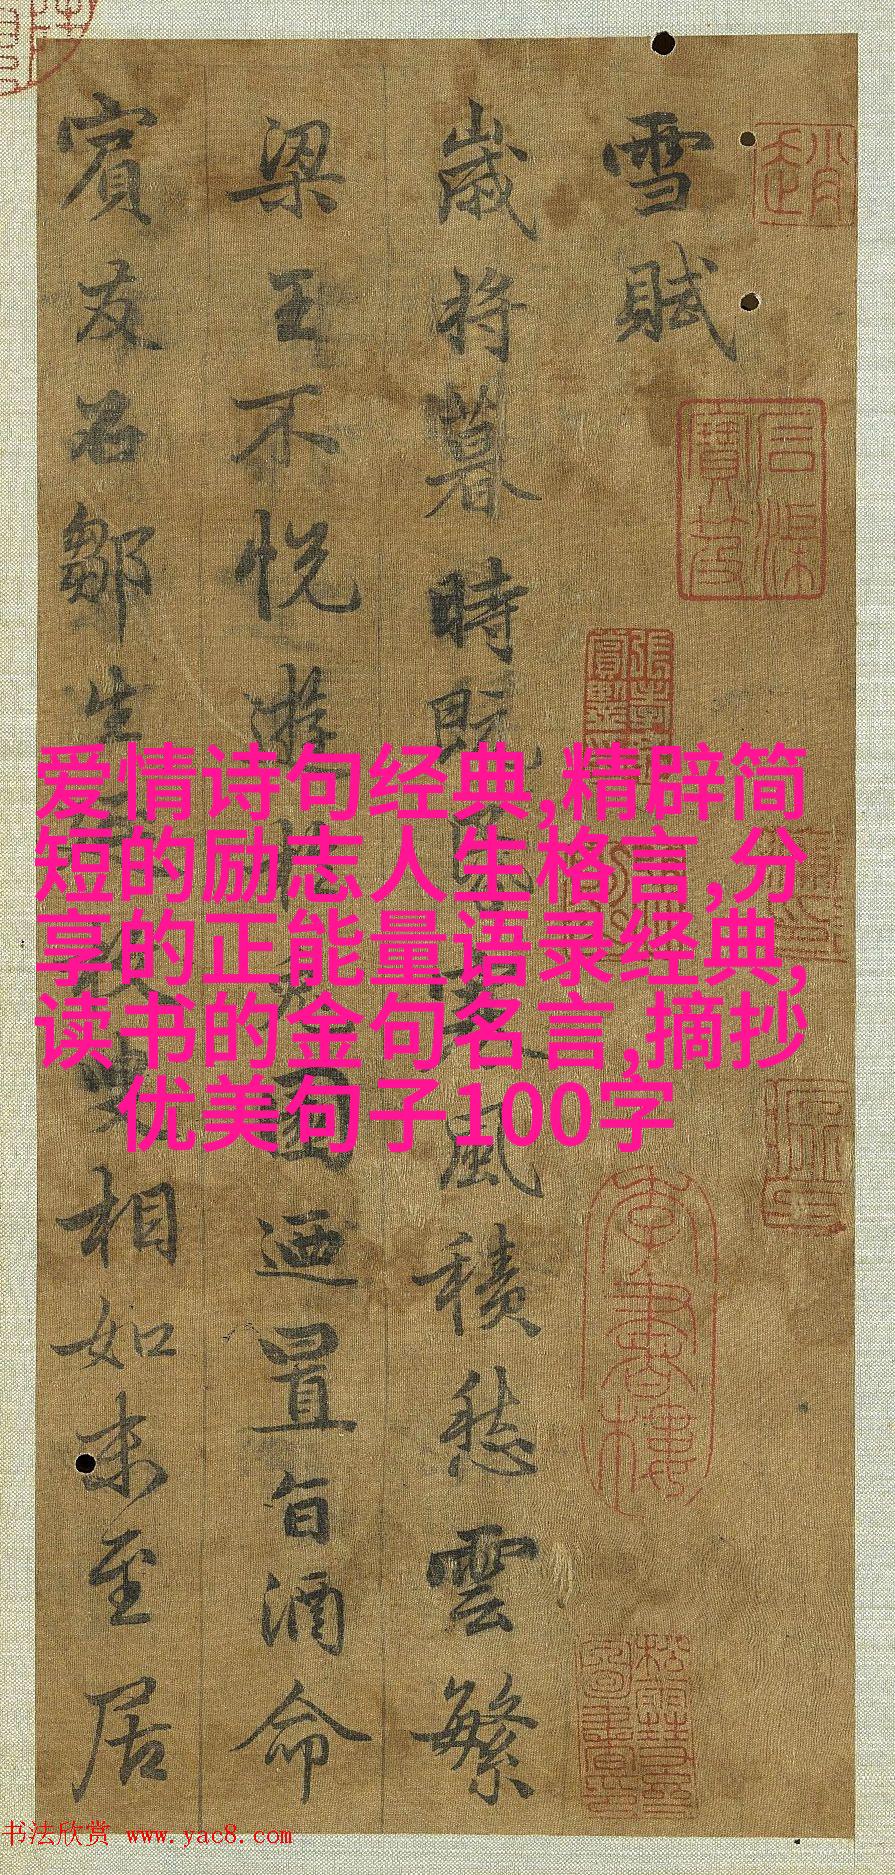 雪賦
歲将暮時既昏寒風積愁雲繁
梁王不悅遊於兔園迺置旨酒命
賓友召鄒生延枚叟相如末至居
爱情诗句经典,精辟简
短的励志人生格言,分
享的正能量语录经典,
读书的金句名言,摘抄
优美句子100字
书法欣赏 www.yac8.com